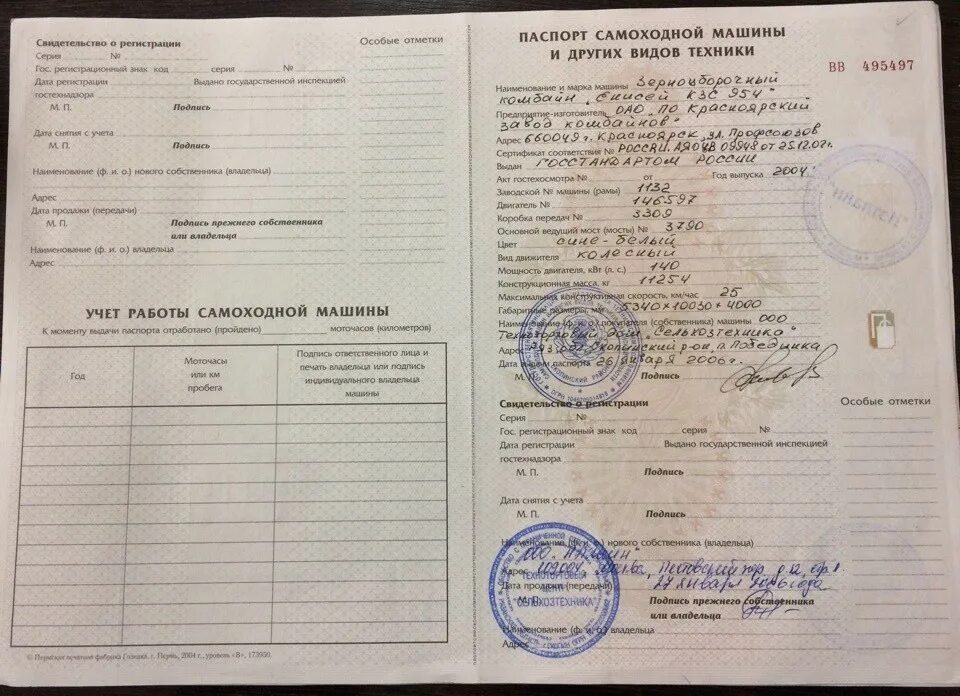 Свидетельство о регистрации
Особые отметки
Серия №
Гос. регистрационный знак код серия №
Дата регистрации Выдано государственной инспекцией
гостехнадзора
М. П. Подпись
Дата снятия с учета
М. П. Подпись
Наименование (ф. и о.) нового собственника (владельца)
Адрес
Дата продажи (передачи)
М. П. Подпись прежнего собственника
или владельца
Наименование (ф. и о.) владельца
Адрес
УЧЕТ РАБОТЫ САМОХОДНОЙ МАШИНЫ
К моменту выдачи паспорта отработано (пройдено) моточасов (километров)
Год
Моточасы
или км
пробега
Подпись ответственного лица и
печать владельца или подпись
индивидуального владельца
машины
© Пермская печатная фабрика Гознака, г. Пермь, 2004 г., уровень «В», 173950.
ПАСПОРТ САМОХОДНОЙ МАШИНЫ
И ДРУГИХ ВИДОВ ТЕХНИКИ
ВВ 495497
Наименование и марка машины Зерноуборочный
комбайн "Енисей КЗС 954"
Предприятие-изготовитель ОАО "ПО Красноярский
завод комбайнов"
Адрес 660049 г. Красноярск, ул. Профсоюзов
Сертификат соответствия № РОСС RU. АЯ04В 09948 от 25.12.02г.
Выдан ГОССТАНДАРТОМ РОССИИ
Акт гостехосмотра № от Год выпуска 2004г
Заводской № машины (рамы) 1132
Двигатель № 146597
Коробка передач № 3309
Основной ведущий мост (мосты) № 3790
Цвет сине-белый
Вид движителя колесный
Мощность двигателя, кВт (л. с.) 140
Конструкционная масса, кг 11254
Максимальная конструктивная скорость, км/час 25
Габаритные размеры, мм 5340×10030×4000
Наименование (ф. и о.) покупателя (собственника) машины ООО
Техноторговый дом "Сельхозтехника"
Адрес Скопинский р-он п. Победника
Дата выдачи паспорта 26 января 2006г.
М. П. Подпись
Свидетельство о регистрации
Особые отметки
Серия №
Гос. регистрационный знак код серия №
Дата регистрации Выдано государственной инспекцией
гостехнадзора
М. П. Подпись
Дата снятия с учета
М. П. Подпись
Наименование (ф. и о.) нового собственника (владельца)
ООО
Адрес 109004 Москва,
Дата продажи (передачи) 27 января 2006 года
М. П. Подпись прежнего собственника
или владельца
Наименование (ф. и о.) владельца
Адрес
ТЕХНОТОРГОВЫЙ
СЕЛЬХОЗТЕХНИКА"